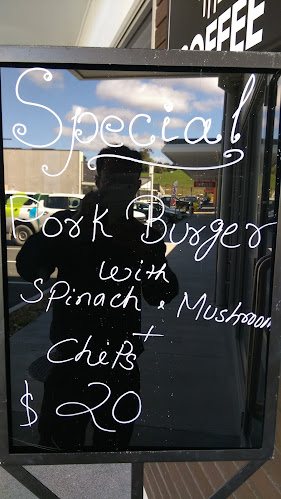 THE
COFFEE
Special
Pork Burger
with
Spinach & Mushroom
+
Chips
$ 20